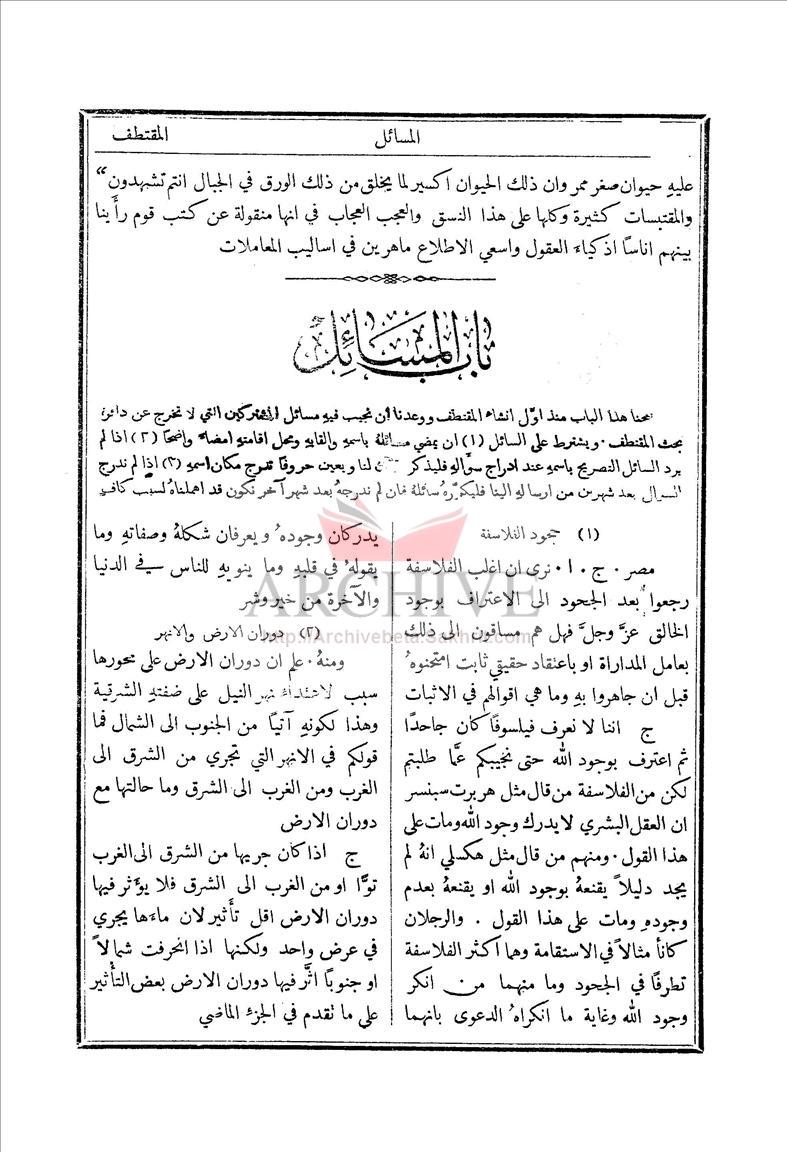 المسائل
المقتطف
عليهِ حيوان صغر ممر وان ذلك الحيوان اكسير لما يخلق من ذلك الورق في الجبال انتم تشهدون“
والمقتبسات كثيرة وكلها على هذا النسق والعجب العجاب في انها منقولة عن كتب قوم رأينا
بينهم اناسًا اذكياء العقول واسعي الاطلاع ماهرين في اساليب المعاملات
باب المسائل
فتحنا هذا الباب منذ اول انشاء المقتطف ووعدنا أن نجيب فيهِ مسائل المشتركين التي لا تخرج عن دائرة
بحث المقتطف . ويشترط على السائل (١) ان يمضي مسائلهُ باسمهِ والقابهِ ومحل اقامتهِ امضاء واضحًا (٢) اذا لم
يرد السائل التصريح باسمهِ عند ادراج سؤالهِ فليذكر لنا ويعين حروفًا تدرج مكان اسمهِ (٣) اذا لم ندرج
السؤال بعد شهرين من ارسالهِ الينا فليكررهُ سائلهُ فان لم ندرجهُ بعد شهر آخر نكون قد اهملناهُ لسبب كافٍ
(١) جحود الفلاسفة
مصر . ج . ا . نرى ان اغلب الفلاسفة
رجعوا بعد الجحود الى الاعتراف بوجود
الخالق عزَّ وجلَّ فهل هم مساقون الى ذلك
بعامل المداراة او باعتقاد حقيقي ثابت امتحنوهُ
قبل ان جاهروا بهِ وما هي اقوالهم في الاثبات
ج اننا لا نعرف فيلسوفًا كان جاحدًا
ثم اعترف بوجود الله حتى نجيبكم عمَّا طلبتم
لكن من الفلاسفة من قال مثل هربرت سبنسر
ان العقل البشري لا يدرك وجود الله ومات على
هذا القول . ومنهم من قال مثل هكسلي انهُ لم
يجد دليلاً يقنعهُ بوجود الله او يقنعهُ بعدم
وجودهِ ومات على هذا القول . والرجلان
كانا مثالاً في الاستقامة وهما اكثر الفلاسفة
تطرفًا في الجحود وما منهما من انكر
وجود الله وغاية ما انكراهُ الدعوى بانهما
يدركان وجودهُ ويعرفان شكلهُ وصفاتهِ وما
يقولهُ في قلبهِ وما ينويهِ للناس في الدنيا
والآخرة من خير وشر
(٢) دوران الارض والانهر
ومنهُ . علم ان دوران الارض على محورها
سبب لاعتداء نهر النيل على ضفتهِ الشرقية
وهذا لكونهِ آتيًا من الجنوب الى الشمال فما
قولكم في الانهر التي تجري من الشرق الى
الغرب ومن الغرب الى الشرق وما حالتها مع
دوران الارض
ج اذا كان جريها من الشرق الى الغرب
توًّا او من الغرب الى الشرق فلا يؤثر فيها
دوران الارض اقل تأثير لان ماءها يجري
في عرض واحد ولكنها اذا انحرفت شمالاً
او جنوبًا اثَّر فيها دوران الارض بعض التأثير
على ما تقدم في الجزء الماضي
ARCHIVE
http://Archivebeta.Sakhrit.com